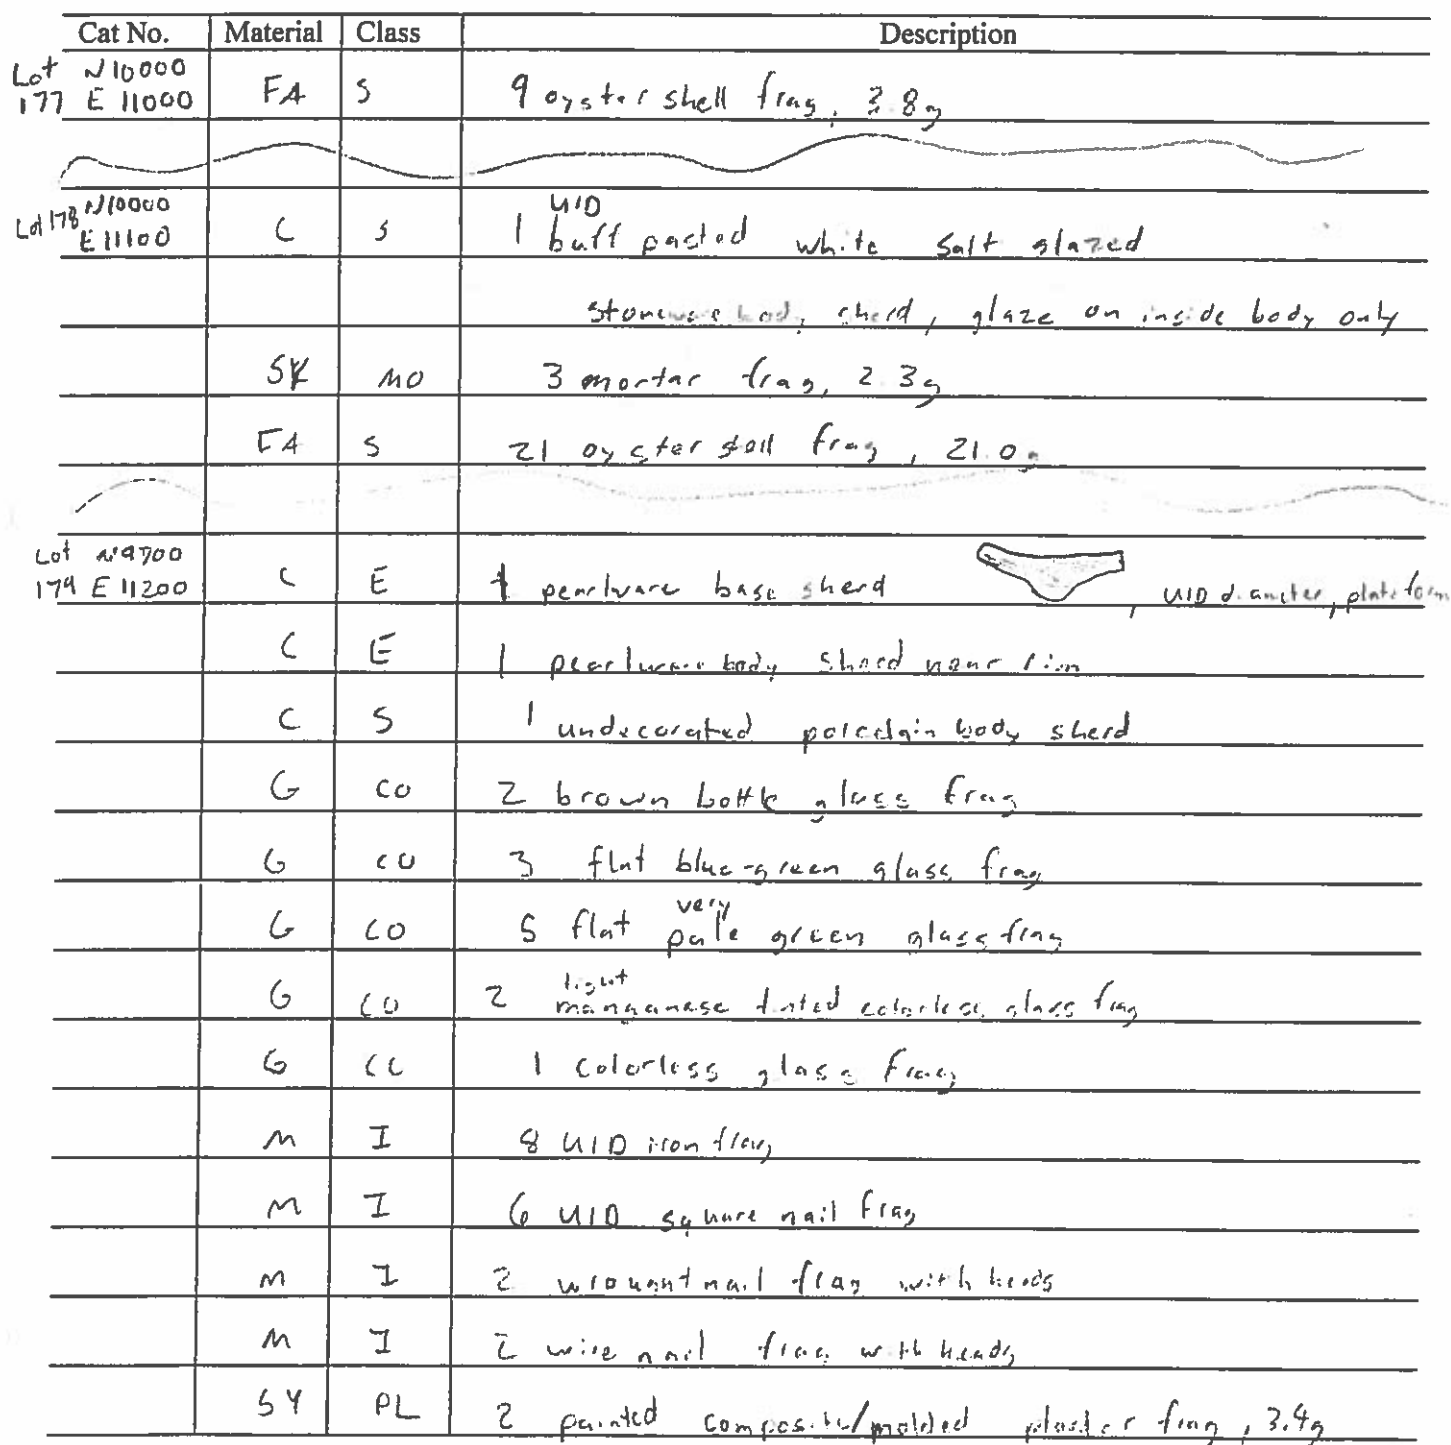 Cat No. Material Class Description
Lot 177 N10000 E 11000 FA S 9 oyster shell frag, 3.8g
Lot 178 N10000 E11100 C S 1 UID buff pasted white salt glazed
stoneware body sherd, glaze on inside body only
SY MO 3 mortar frag, 2.3g
FA S 21 oyster shell frag, 21.0g
Lot 179 N9700 E 11200 C E 1 pearlware base sherd , UID diameter, plate form
C E 1 pearlware body sherd near rim
C S 1 undecorated porcelain body sherd
G CO 2 brown bottle glass frag
G CO 3 flat blue-green glass frag
G CO 5 flat very pale green glass frag
G CO 2 light manganese tinted colorless glass frag
G CO 1 colorless glass frag
M I 8 UID iron frag
M I 6 UID square nail frag
M I 2 wrought nail frag with heads
M I 2 wire nail frag with heads
SY PL 2 painted composite/molded plaster frag, 3.4g